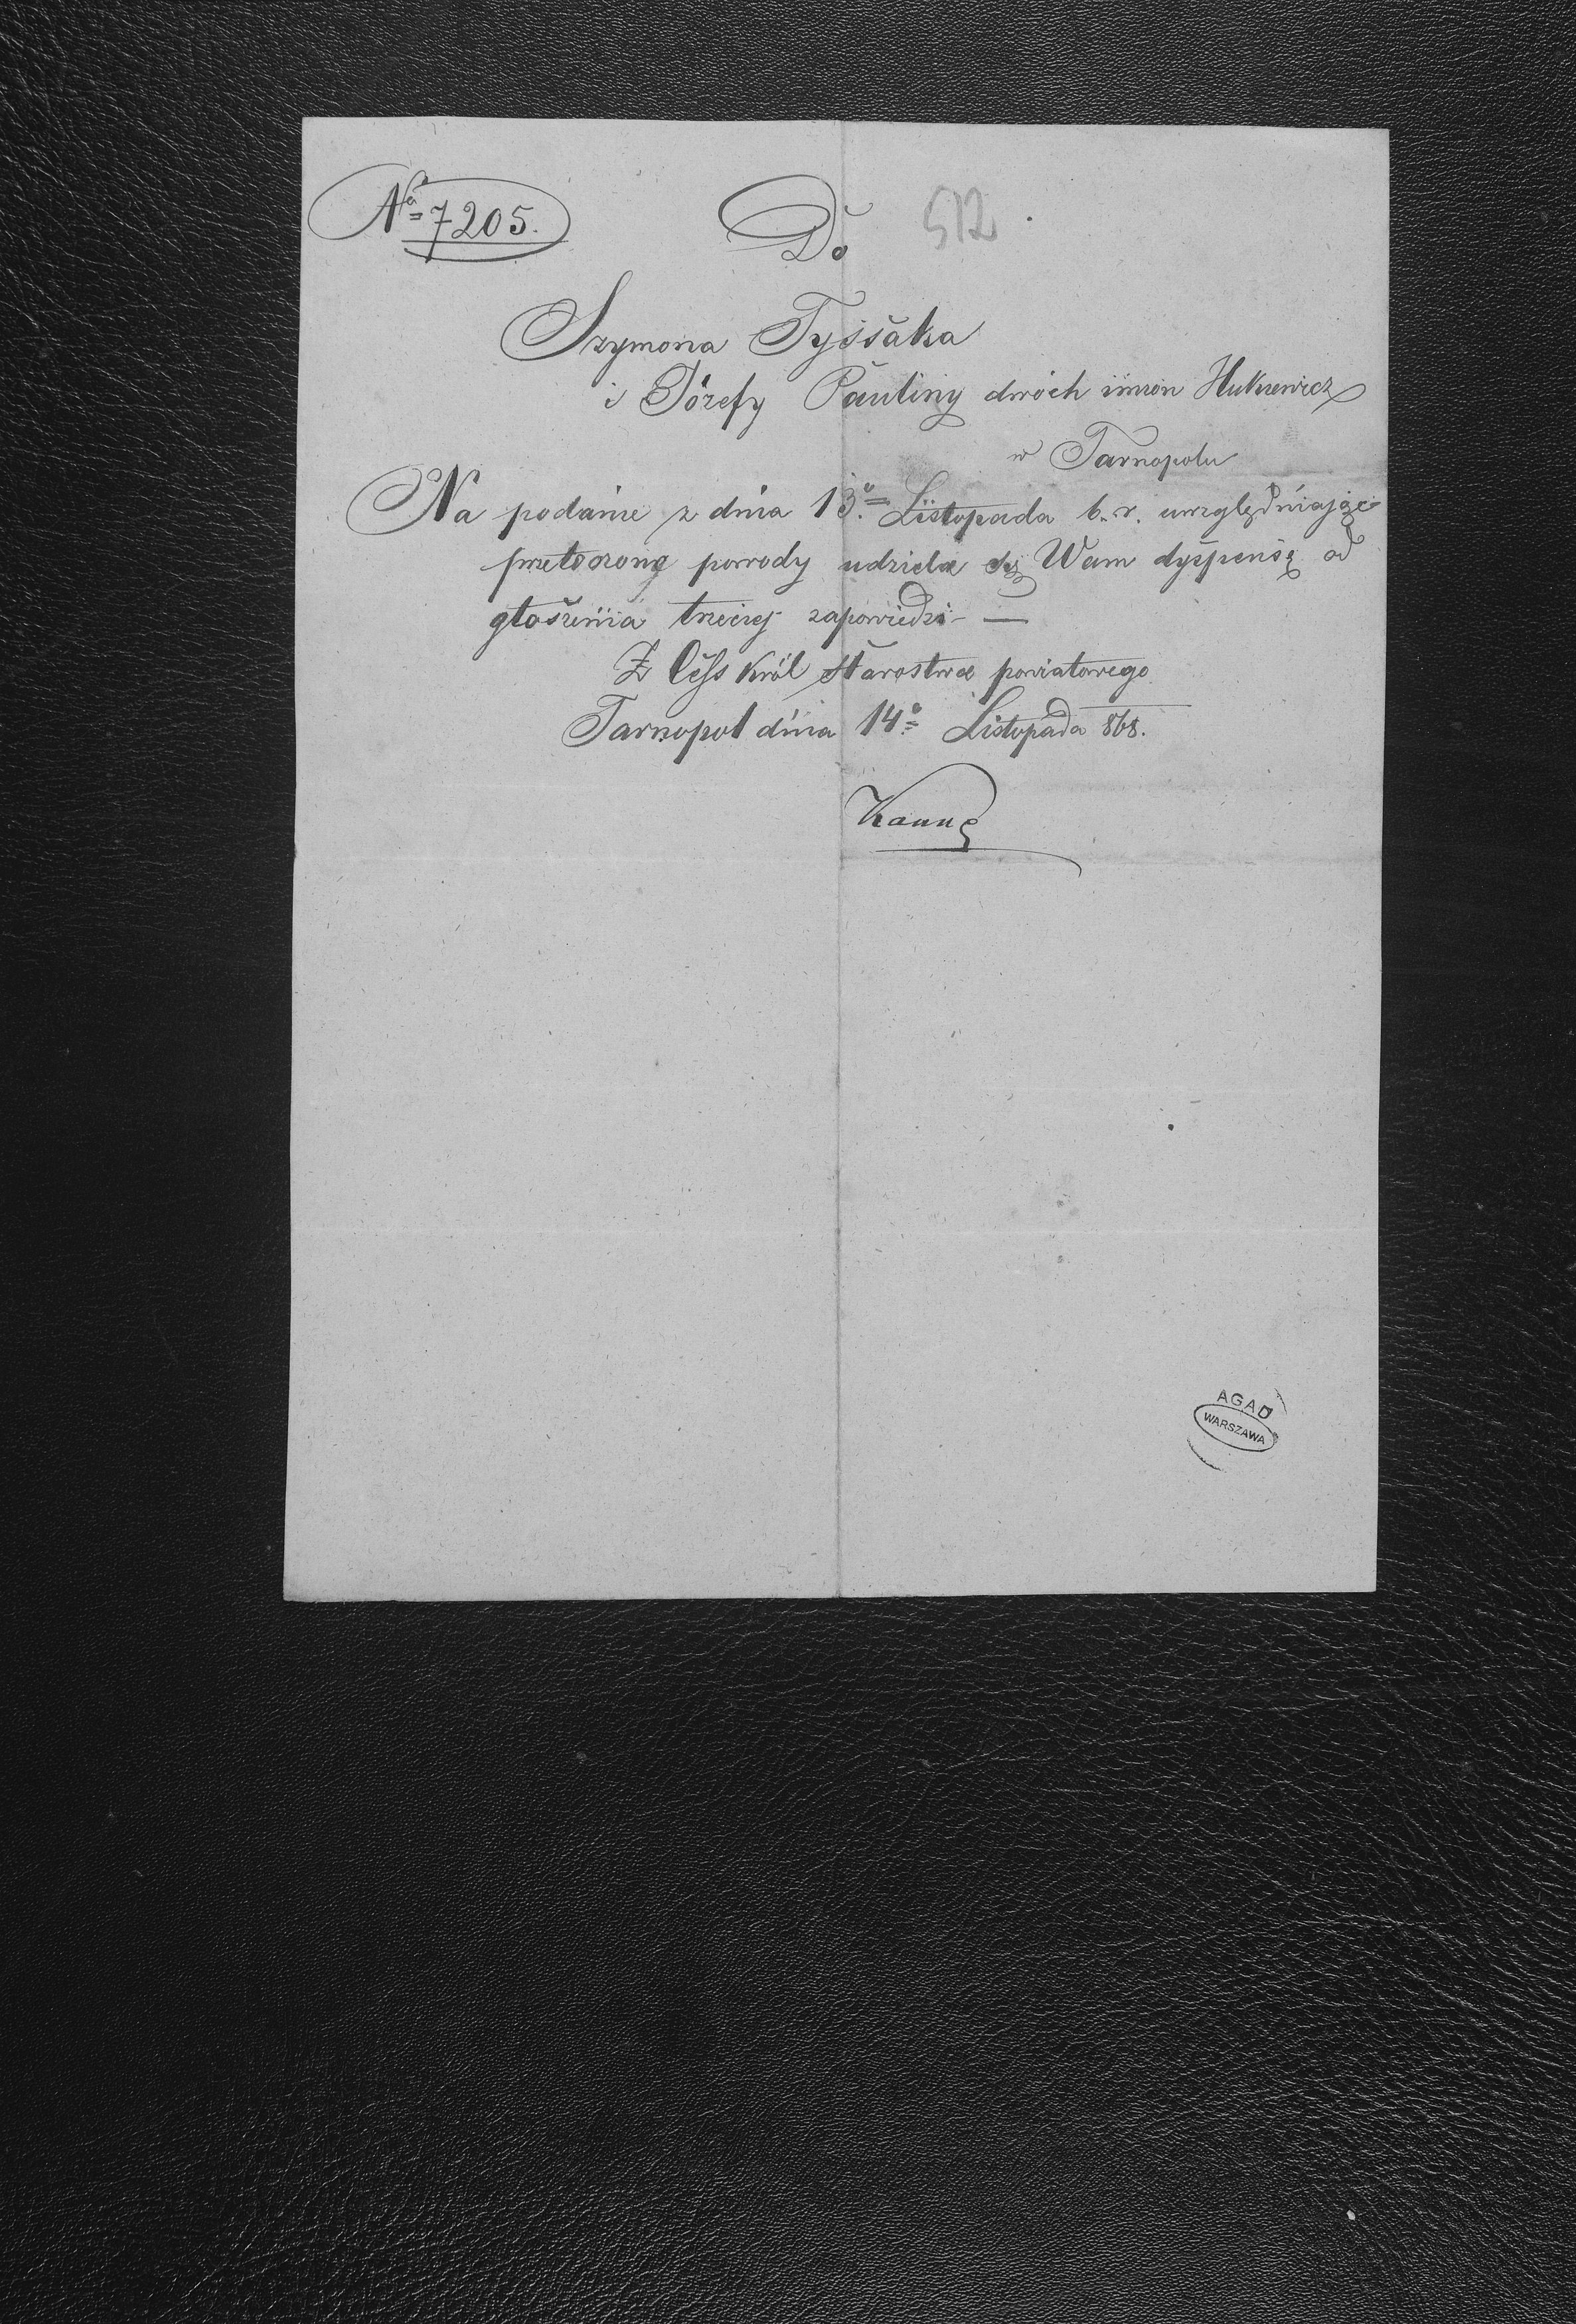 No 7205.
Do
512
Szymona Tyssaka
i Józefy Pauliny dwóch imion Hukiewicz
w Tarnopolu
Na podanie z dnia 13o Listopada b. r. uwzględniając
przełożone powody udziela się Wam dyspensę od
głoszenia trzeciej zapowiedzi —
Z Cess król Starostwa powiatowego
Tarnopol dnia 14o Listopada 868.
AGAD
WARSZAWA